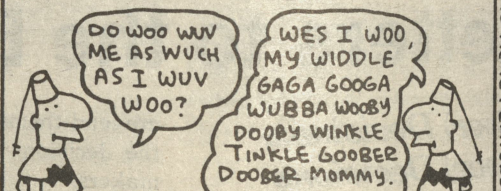 DO WOO WUV
ME AS WUCH
AS I WUV
WOO?
WES I WOO,
MY WIDDLE
GAGA GOOGA
WUBBA WOOBY
DOOBY WINKLE
TINKLE GOOBER
DOOBER MOMMY.